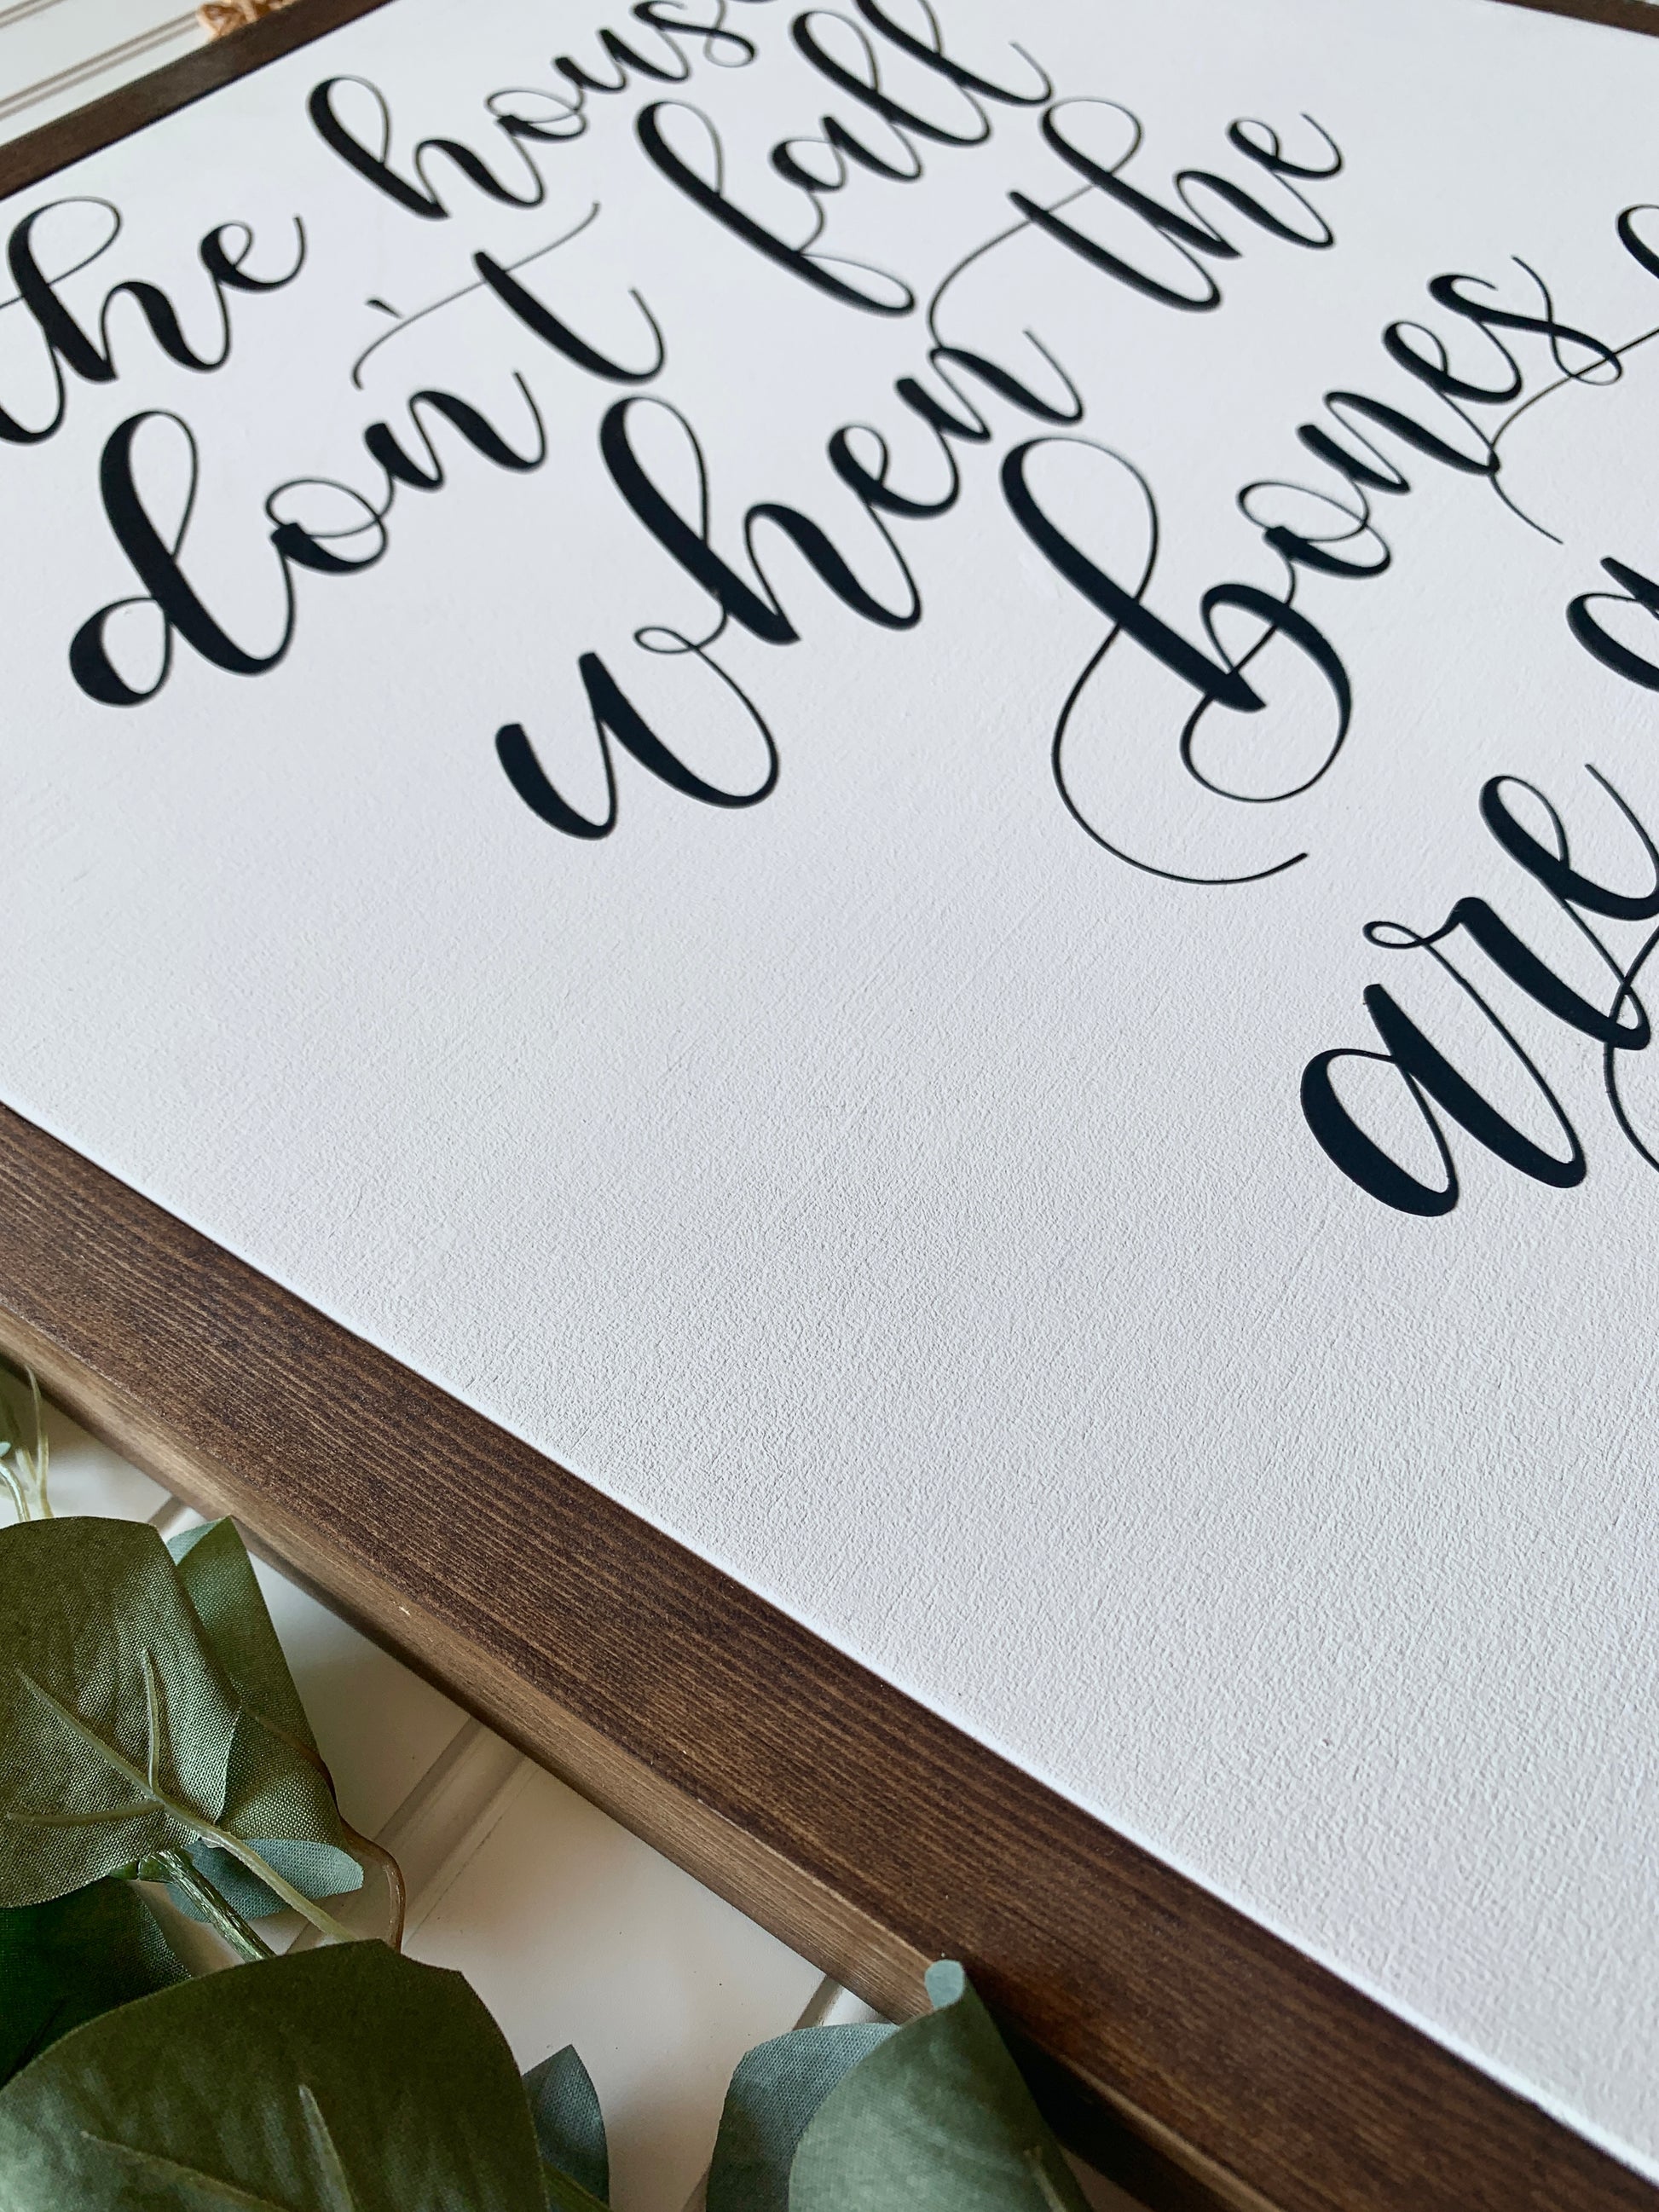 the house
don't fall
when the
bones
are